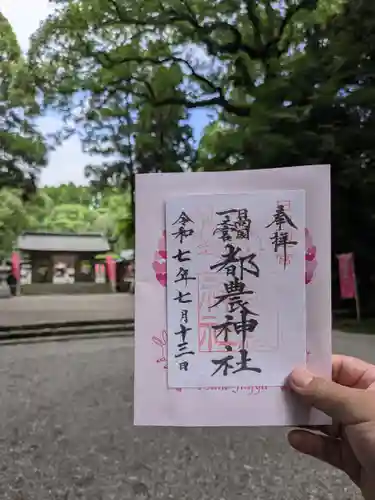 奉拝
日向国
一之宮
都農神社
令和七年七月十三日